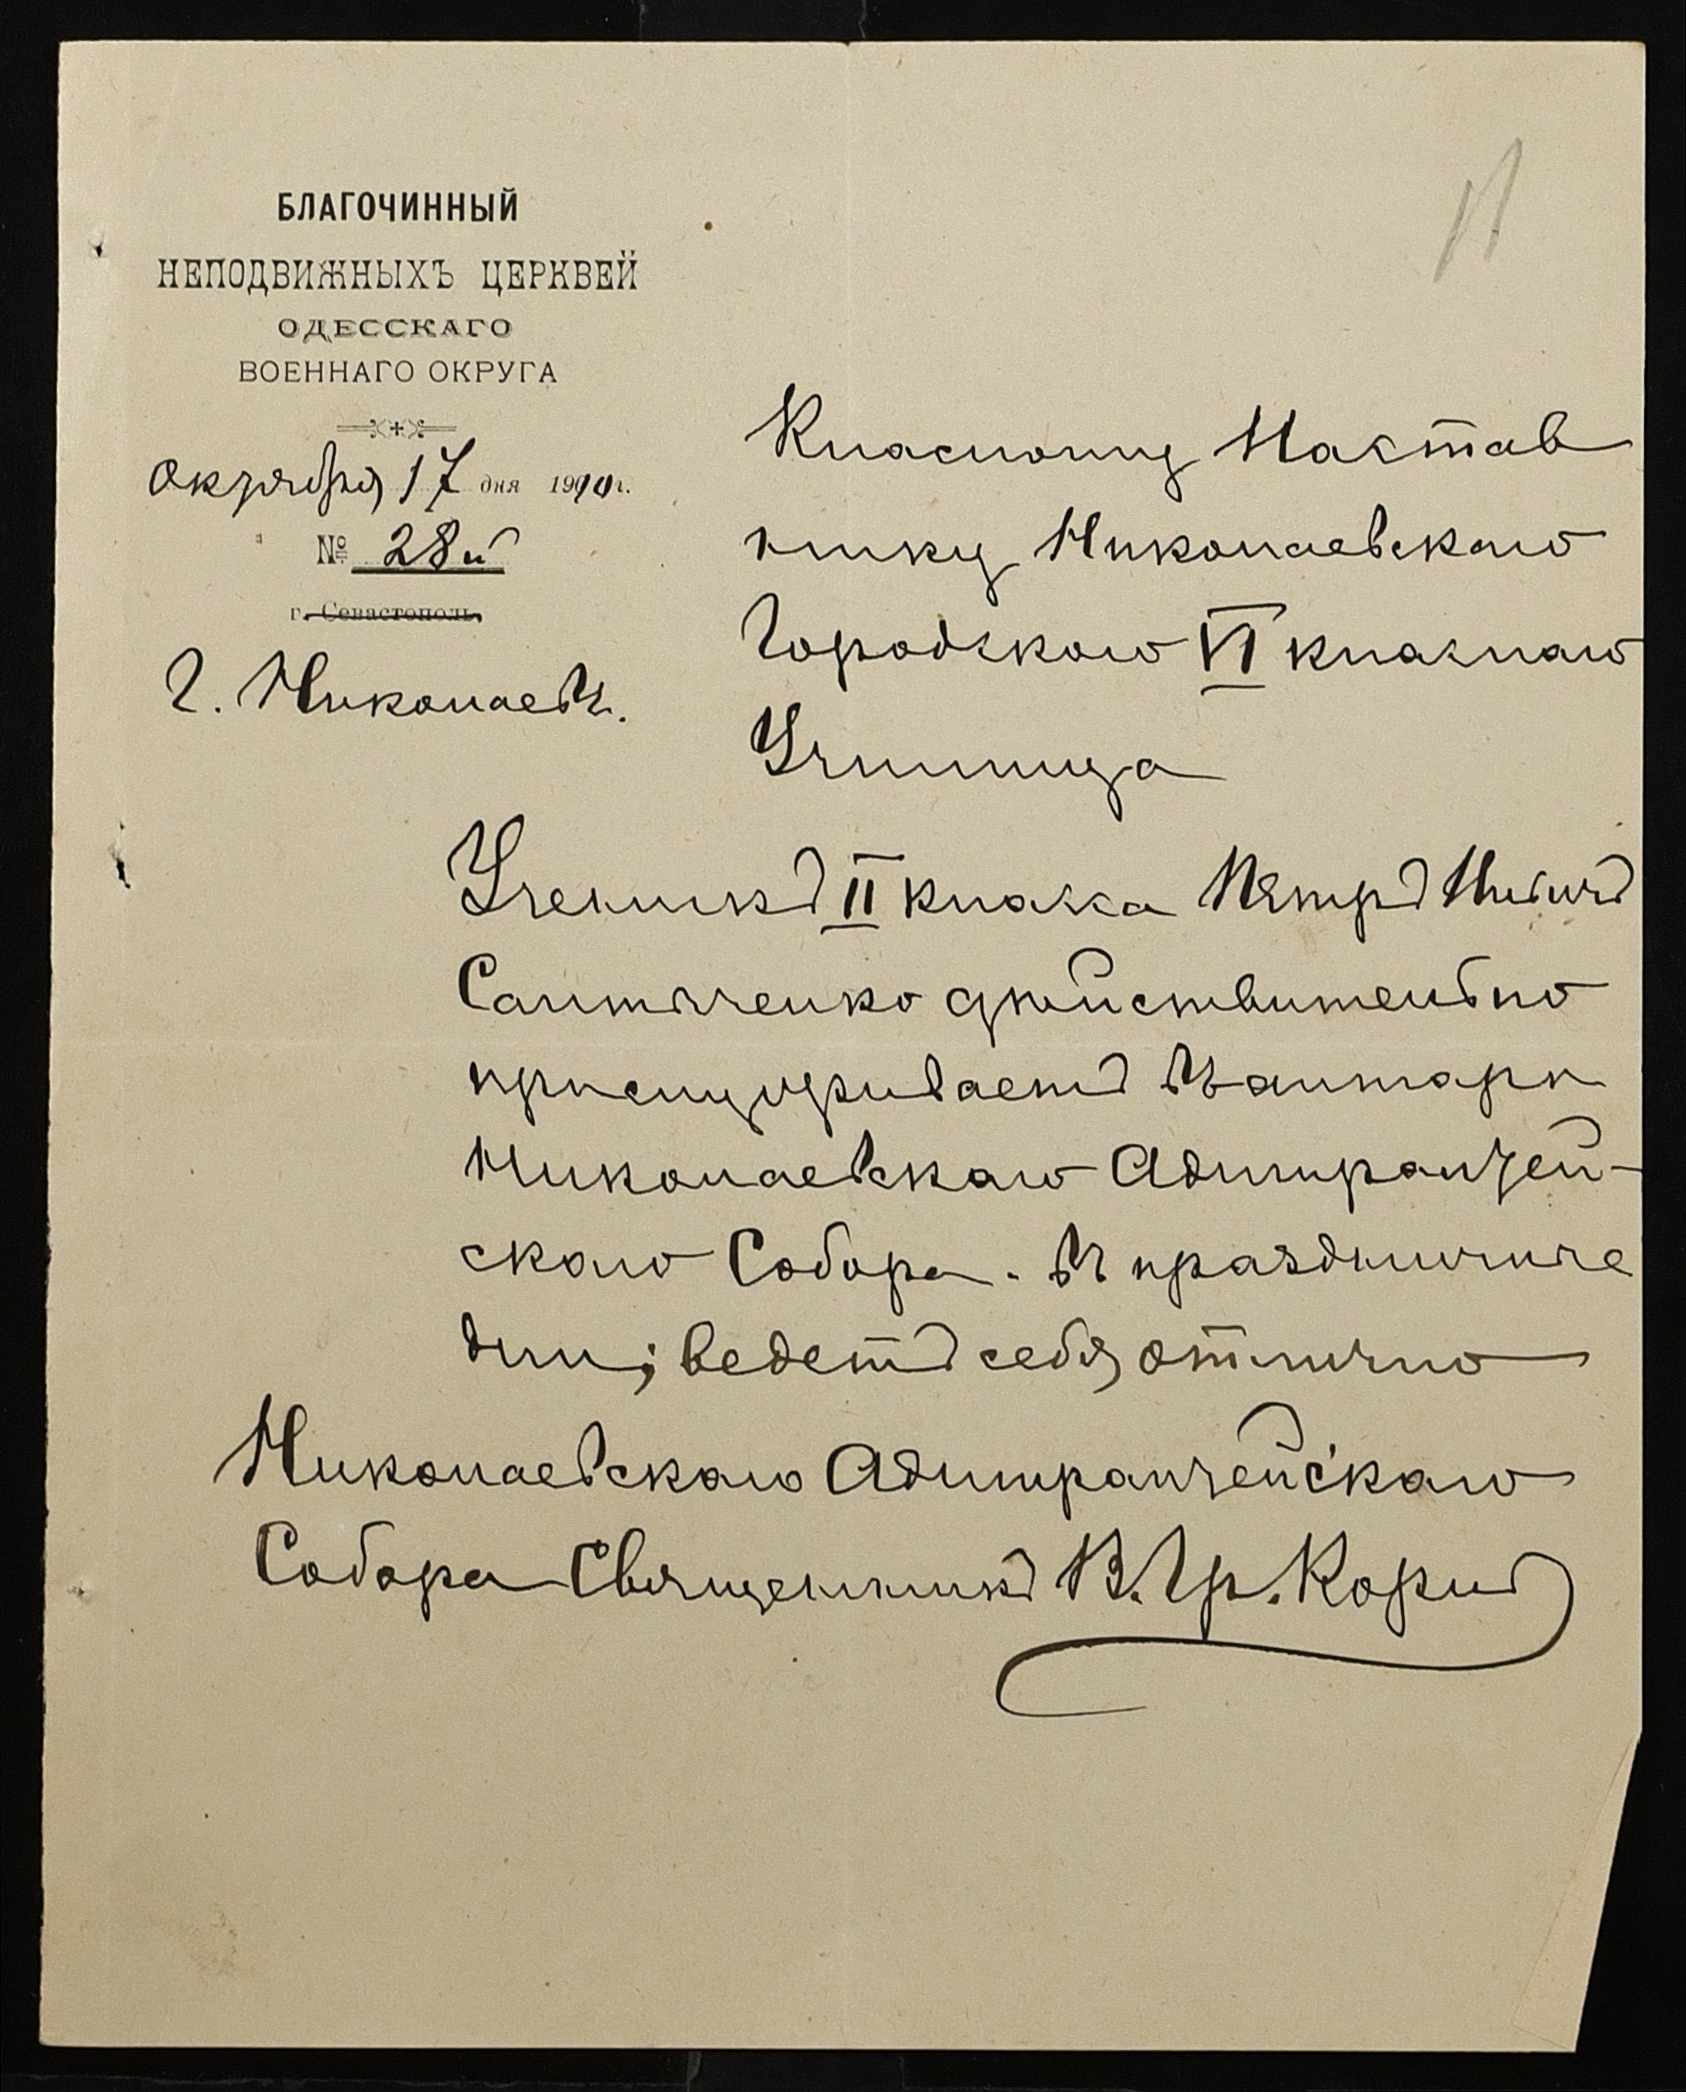 БЛАГОЧИННЫЙ
НЕПОДВИЖНЫХЪ ЦЕРКВЕЙ
ОДЕССКАГО
ВОЕННАГО ОКРУГА
Октября 17 дня 1910 г.
№ 28й
г. Севастополь.
Г. Николаевъ.
Классному Настав
нику Николаевскаго
Городского VI класнаго
Училища
Ученикъ II класса Петръ
Салтыченко дѣйствительно
прислуживаетъ въ алтарѣ
Николаевскаго Адмиралтей-
скаго Собора. Въ праздничные
дни; ведетъ себя отлично
Николаевскаго Адмиралтейскаго
Собора Священникъ В. Гр.